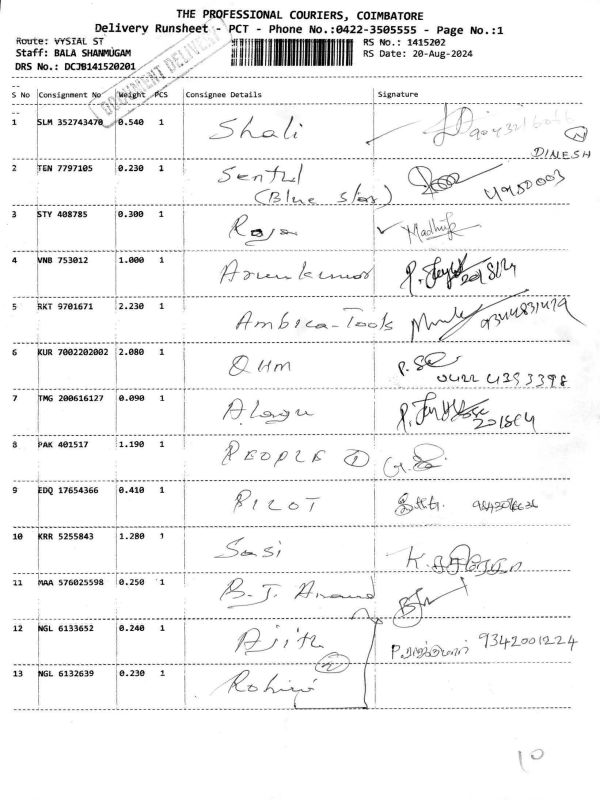 THE PROFESSIONAL COURIERS, COIMBATORE
Delivery Runsheet - PCT - Phone No.:0422-3505555 - Page No.:1
Route: VYSIAL ST RS No.: 1415202
Staff: BALA SHANMUGAM RS Date: 20-Aug-2024
DRS No.: DCJB141520201
DOCUMENT DELIVERY
S No Consignment No Weight PCS Consignee Details Signature
1 SLM 352743470 0.540 1 Shali
DINESH
2 TEN 7797105 0.230 1 Sentul
(Blue Star) 4980003
3 STY 408785 0.300 1 Raja
4 VNB 753012 1.000 1 Arunkumar
5 RKT 9701671 2.230 1 Ambica-Tools 9344831479
6 KUR 7002202002 2.080 1 QHM
0422 4393398
7 TMG 200616127 0.090 1 Alagu
8 PAK 401517 1.190 1 PEOPLE
9 EDQ 17654366 0.410 1 PILOT
10 KRR 5255843 1.280 1 Sasi
11 MAA 576025598 0.250 1 B.J. Anand
12 NGL 6133652 0.240 1 Ajith 9342001224
13 NGL 6132639 0.230 1 Rohini
10